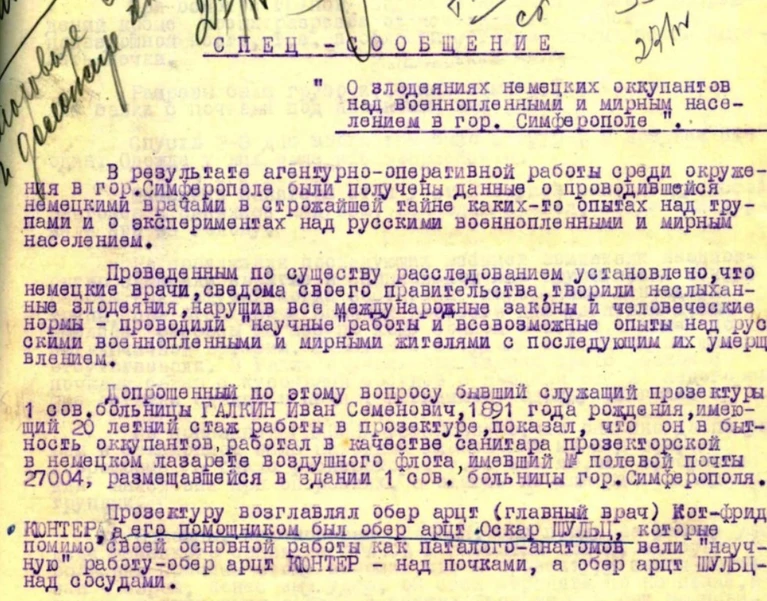 и доложите
27/IV
27/IV
СПЕЦ-СООБЩЕНИЕ
" О злодеяниях немецких оккупантов
над военнопленными и мирным насе-
лением в гор. Симферополе ".
В результате агентурно-оперативной работы среди окруже-
ния в гор.Симферополе были получены данные о проводившейся
немецкими врачами в строжайшей тайне каких-то опытах над тру-
пами и о экспериментах над русскими военнопленными и мирным
населением.
Проведенным по существу расследованием установлено,что
немецкие врачи,сведома своего правительства,творили неслыхан-
ные злодеяния,нарушив все международные законы и человеческие
нормы - проводили "научные работы и всевозможные опыты над рус
скими военнопленными и мирными жителями с последующим их умерщ
влением.
Допрошенный по этому вопросу бывший служащий прозектуры
1 сов.больницы ГАЛКИН Иван Семенович,1891 года рождения,имею-
щий 20 летний стаж работы в прозектуре,показал, что он в быт-
ность оккупантов,работал в качестве санитара прозекторской
в немецком лазарете воздушного флота,имевший № полевой почты
27004, размещавшейся в здании 1 сов. больницы гор.Симферополя.
Прозектуру возглавлял обер арцт (главный врач) Кот-фрид
КЮНТЕР, а его помощником был обер арцт Оскар ШУЛЬЦ, которые
помимо своей основной работы как паталого-анатомов вели "науч-
ную" работу-обер арцт КЮНТЕР - над почками, а обер арцт ШУЛЬЦ-
над сосудами.